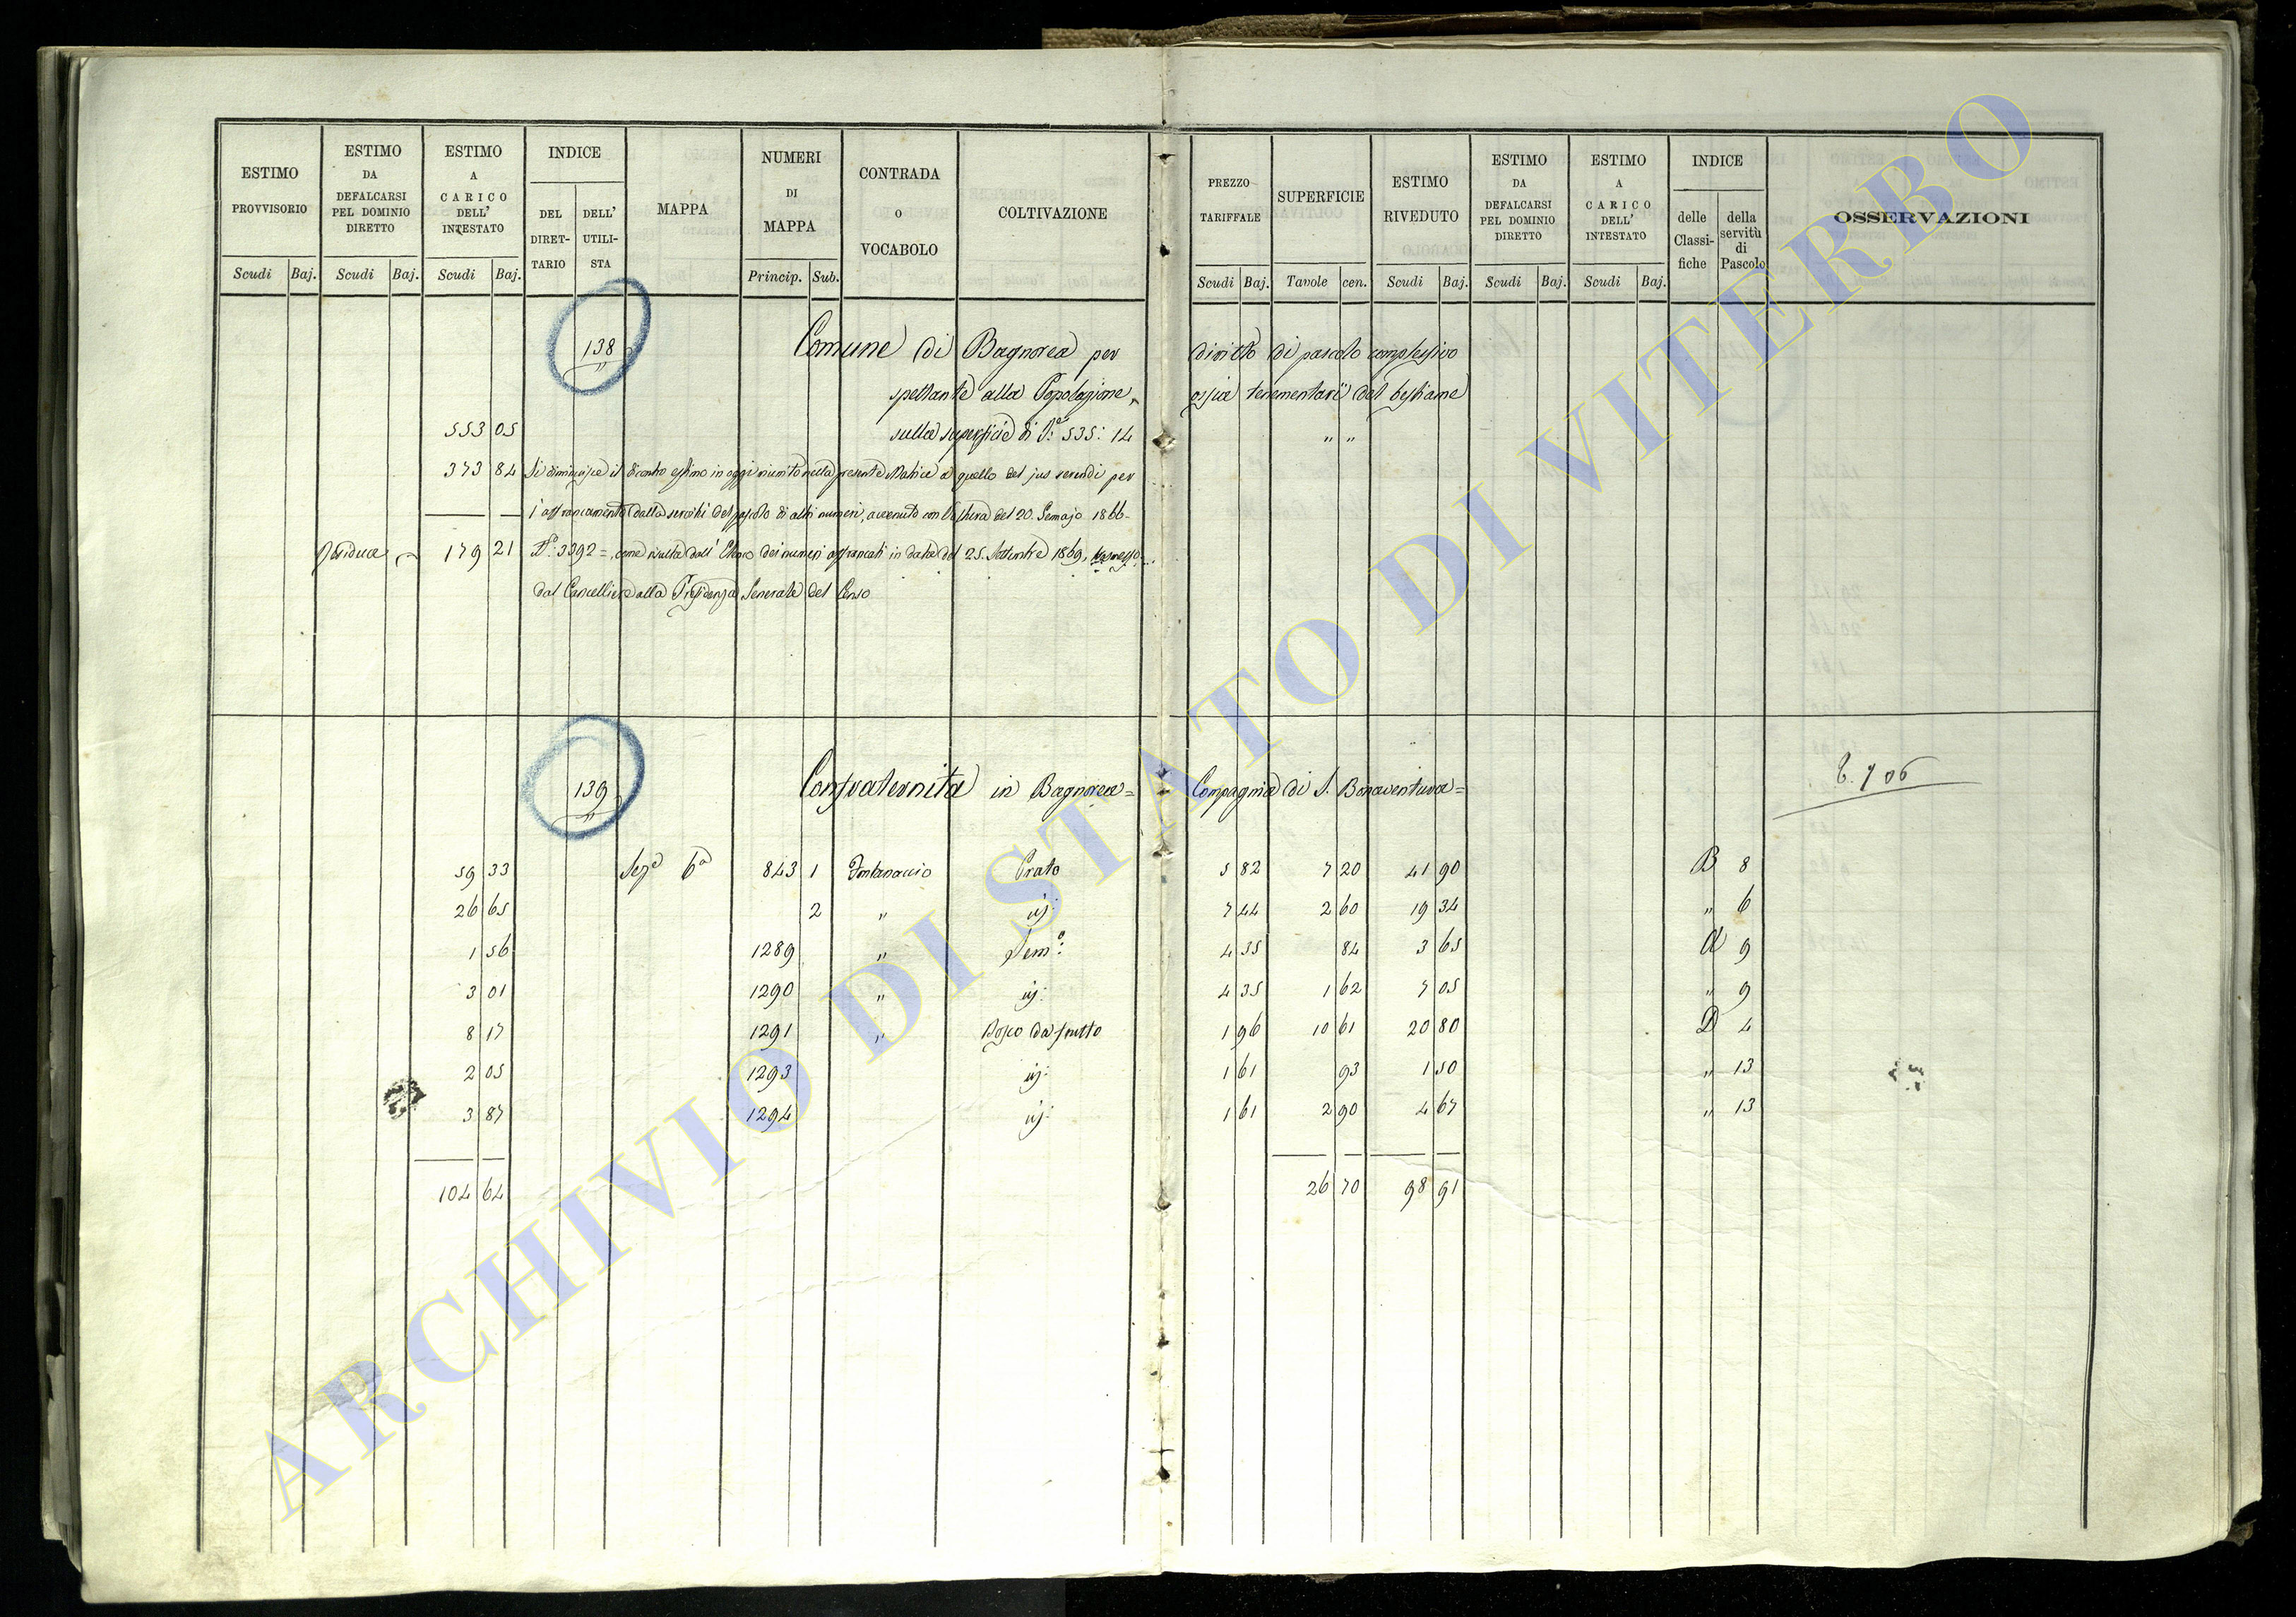 ESTIMO PROVVISORIO Scudi Baj.
ESTIMO DA DEFALCARSI PEL DOMINIO DIRETTO Scudi Baj.
ESTIMO A CARICO DELL' INTESTATO Scudi Baj.
INDICE DEL DIRET-TARIO DELL' UTILI-STA
MAPPA
NUMERI DI MAPPA Princip. Sub.
CONTRADA O VOCABOLO
COLTIVAZIONE
PREZZO TARIFFALE Scudi Baj.
SUPERFICIE Tavole cen.
ESTIMO RIVEDUTO Scudi Baj.
ESTIMO DA DEFALCARSI PEL DOMINIO DIRETTO Scudi Baj.
ESTIMO A CARICO DELL' INTESTATO Scudi Baj.
INDICE delle Classi-fiche della servitù di Pascolo
OSSERVAZIONI
138 Comune di Bagnorea per diritto di pascolo complessivo
spettante alla Popolazione, ossia tenementarj del bestiame
553 05 sulla superficie di T.e 535: 14 " "
373 84 Si diminuisce il estimo in oggi riunito nella presente Matrice a quello del jus serendi per
l'affrancamento dalla servitù del pascolo di altri numeri, avvenuto con Voltura del 20. Gennajo 1866
179 21 N.° 3392 =, come risulta dall' Elenco dei numeri affrancati in data del 25. Settembre 1869,
dal Cancelliere alla Presidenza Generale del Censo
139 Confraternita in Bagnorea = Compagnia di S. Bonaventura = 706
59 33 Sez.e 6a 843 1 Fontanaccio Prato 5 82 7 20 41 90 B 8
26 65 2 " id: 7 44 2 60 19 34 " 6
1 56 1289 " Sem.o: 4 35 84 3 65 A 9
3 01 1290 " id: 4 35 1 62 7 05 " 9
8 17 1291 " Bosco da frutto 1 96 10 61 20 80 D 4
2 05 1293 id: 1 61 93 1 50 " 13
3 87 1294 id: 1 61 2 90 4 67 " 13
104 64 26 70 98 91
ARCHIVIO DI STATO DI VITERBO